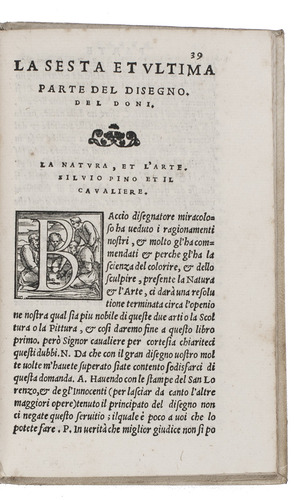 39
LA SESTA ET VLTIMA
PARTE DEL DISEGNO.
DEL DONI.
LA NATVRA, ET L'ARTE.
SILVIO PINO ET IL
CAVALIERE.
BAccio disegnatore miracolo-
so ha ueduto i ragionamenti
nostri, & molto gl'ha com-
mendati & perche gl'ha la
scienza del colorire, & dello
sculpire, presente la Natura
& l'Arte, ci darà una resolu
tione terminata circa l'openio
ne nostra qual sia piu nobile di queste due arti o la Scol
tura o la Pittura, & cosi daremo fine a questo libro
primo. però Signor caualiere per cortesia chiariteci
questi dubbi. N. Da che con il gran disegno uostro mol
te uolte m'hauete superato siate contento sodisfarci di
questa domanda. A. Hauendo con le stampe del San Lo
renzo, & de gl'Innocenti (per lasciar da canto l'altre
maggiori opere) tenuto il principato del disegno non
ci negate questo seruitio; ilquale è poco a uoi che lo
potete fare. P. In uerità che miglior giudice non si po